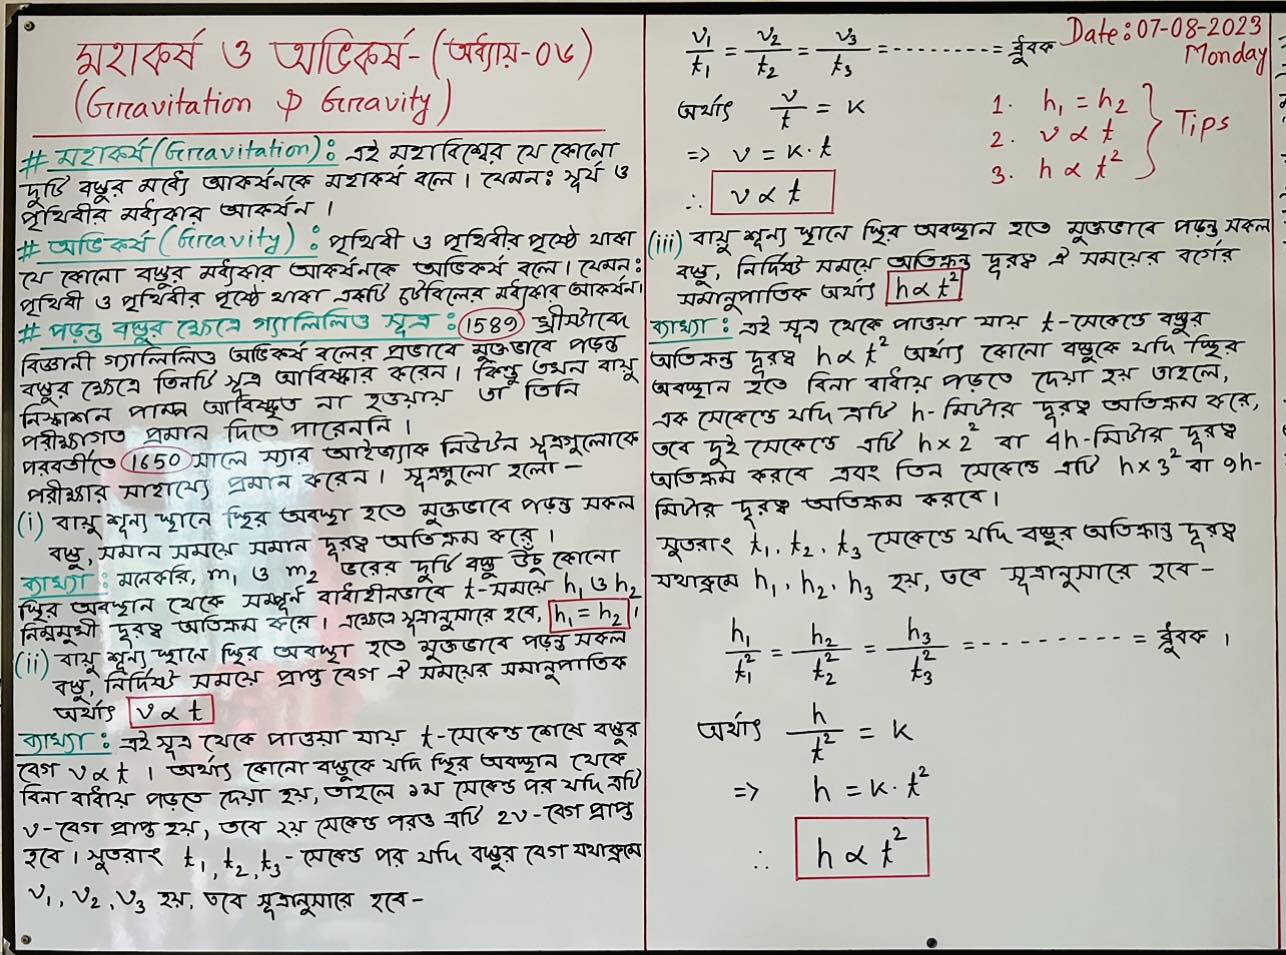 মহাকর্ষ ও অভিকর্ষ-(অধ্যায়-০৬)
(Gravitation & Gravity)
# মহাকর্ষ (Gravitation): এই মহাবিশ্বের যে কোনো
দুটি বস্তুর মধ্যে আকর্ষনকে মহাকর্ষ বলে। যেমনঃ সূর্য ও
পৃথিবীর মধ্যকার আকর্ষন।
# অভিকর্ষ (Gravity): পৃথিবী ও পৃথিবীর পৃষ্ঠে থাকা
যে কোনো বস্তুর মধ্যকার আকর্ষনকে অভিকর্ষ বলে। যেমনঃ
পৃথিবী ও পৃথিবীর পৃষ্ঠে থাকা একটি টেবিলের মধ্যকার আকর্ষন।
# পড়ন্ত বস্তুর ক্ষেত্রে গ্যালিলিও সূত্র: 1589 খ্রীস্টাব্দে
বিজ্ঞানী গ্যালিলিও অভিকর্ষ বলের প্রভাবে মুক্তভাবে পড়ন্ত
বস্তুর ক্ষেত্রে তিনটি সূত্র আবিষ্কার করেন। কিন্তু তখন বায়ু
নিষ্কাশন পাম্প আবিষ্কৃত না হওয়ায় তা তিনি
পরীক্ষাগত প্রমান দিতে পারেননি।
পরবর্তীতে 1650 সালে স্যার আইজ্যাক নিউটন সূত্রগুলোকে
পরীক্ষার সাহায্যে প্রমান করেন। সূত্রগুলো হলো –
(i) বায়ু শূন্য স্থানে স্থির অবস্থা হতে মুক্তভাবে পড়ন্ত সকল
বস্তু, সমান সময়ে সমান দূরত্ব অতিক্রম করে।
ব্যাখ্যা: মনেকরি, m₁ ও m₂ ভরের দুটি বস্তু উঁচু কোনো
স্থির অবস্থান থেকে সম্পূর্ন বাধাহীনভাবে t-সময়ে h₁ ও h₂
নিম্নমুখী দূরত্ব অতিক্রম করে। এক্ষেত্রে সূত্রানুসারে হবে, h₁ = h₂।
(ii) বায়ু শূন্য স্থানে স্থির অবস্থা হতে মুক্তভাবে পড়ন্ত সকল
বস্তু, নির্দিষ্ট সময়ে প্রাপ্ত বেগ ঐ সময়ের সমানুপাতিক
অর্থাৎ v ∝ t
ব্যাখ্যা: এই সূত্র থেকে পাওয়া যায় t-সেকেন্ড শেষে বস্তুর
বেগ v ∝ t। অর্থাৎ কোনো বস্তুকে যদি স্থির অবস্থান থেকে
বিনা বাধায় পড়তে দেয়া হয়, তাহলে ১ম সেকেন্ড পর যদি এটি
v-বেগ প্রাপ্ত হয়, তবে ২য় সেকেন্ড পরও এটি 2v-বেগ প্রাপ্ত
হবে। সুতরাং t₁, t₂, t₃-সেকেন্ড পর যদি বস্তুর বেগ যথাক্রমে
v₁, v₂, v₃ হয়, তবে সূত্রানুসারে হবে–
Date: 07-08-2023
Monday
v₁/t₁ = v₂/t₂ = v₃/t₃ = --------- = ধ্রুবক
অর্থাৎ v/t = K
=> v = K·t
∴ v ∝ t
1. h₁ = h₂
2. v ∝ t
3. h ∝ t²
Tips
(iii) বায়ু শূন্য স্থানে স্থির অবস্থান হতে মুক্তভাবে পড়ন্ত সকল
বস্তু, নির্দিষ্ট সময়ে অতিক্রন্ত দূরত্ব ঐ সময়ের বর্গের
সমানুপাতিক অর্থাৎ h ∝ t²
ব্যাখ্যা: এই সূত্র থেকে পাওয়া যায় t-সেকেন্ডে বস্তুর
অতিক্রন্ত দূরত্ব h ∝ t² অর্থাৎ কোনো বস্তুকে যদি স্থির
অবস্থান হতে বিনা বাধায় পড়তে দেয়া হয় তাহলে,
এক সেকেন্ডে যদি এটি h-মিটার দূরত্ব অতিক্রম করে,
তবে দুই সেকেন্ডে এটি h×2² বা 4h-মিটার দূরত্ব
অতিক্রম করবে এবং তিন সেকেন্ডে এটি h×3² বা 9h-
মিটার দূরত্ব অতিক্রম করবে।
সুতরাং t₁, t₂, t₃ সেকেন্ডে যদি বস্তুর অতিক্রান্ত দূরত্ব
যথাক্রমে h₁, h₂, h₃ হয়, তবে সূত্রানুসারে হবে–
h₁/t₁² = h₂/t₂² = h₃/t₃² = --------- = ধ্রুবক।
অর্থাৎ h/t² = K
=> h = K·t²
∴ h ∝ t²